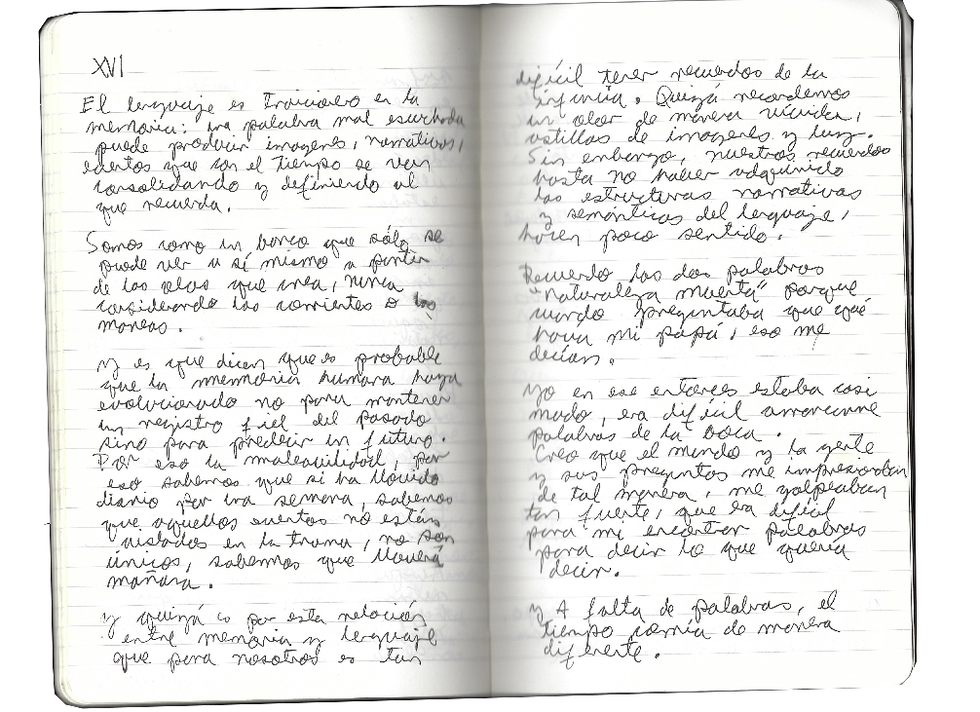 XVI
El lenguaje es traicionero en la
memoria: una palabra mal escuchada
puede producir imágenes, narrativas,
eventos que con el tiempo se van
consolidando y definiendo al
que recuerda.
Somos como un barco que sólo se
puede ver a sí mismo a partir
de las olas que crea, nunca
considerando las corrientes o las
mareas.
Y es que dicen que es probable
que la memoria humana haya
evolucionado no para mantener
un registro fiel del pasado
sino para predecir un futuro.
Por eso la maleabilidad, por
eso sabemos que si ha llovido
diario por una semana, sabemos
que aquellos eventos no están
aislados en la trama, no son
únicos, sabemos que lloverá
mañana.
Y quizá es por esta relación
entre memoria y lenguaje
que para nosotros es tan
difícil tener recuerdos de la
infancia. Quizá recordemos
un olor de manera vívida,
astillas de imágenes y luz.
Sin embargo, nuestros recuerdos
hasta no haber adquirido
las estructuras narrativas
y semánticas del lenguaje,
hacen poco sentido.
Recuerdo las dos palabras
"naturaleza muerta" porque
cuando preguntaba que qué
hacía mi papá, eso me
decían.
Yo en ese entonces estaba casi
mudo, era difícil arrancarme
palabras de la boca.
Creo que el mundo y la gente
y sus preguntas me impresionaban
de tal manera, me golpeaban
tan fuerte, que era difícil
para mi encontrar palabras
para decir lo que quería
decir.
Y A falta de palabras, el
tiempo corría de manera
diferente.